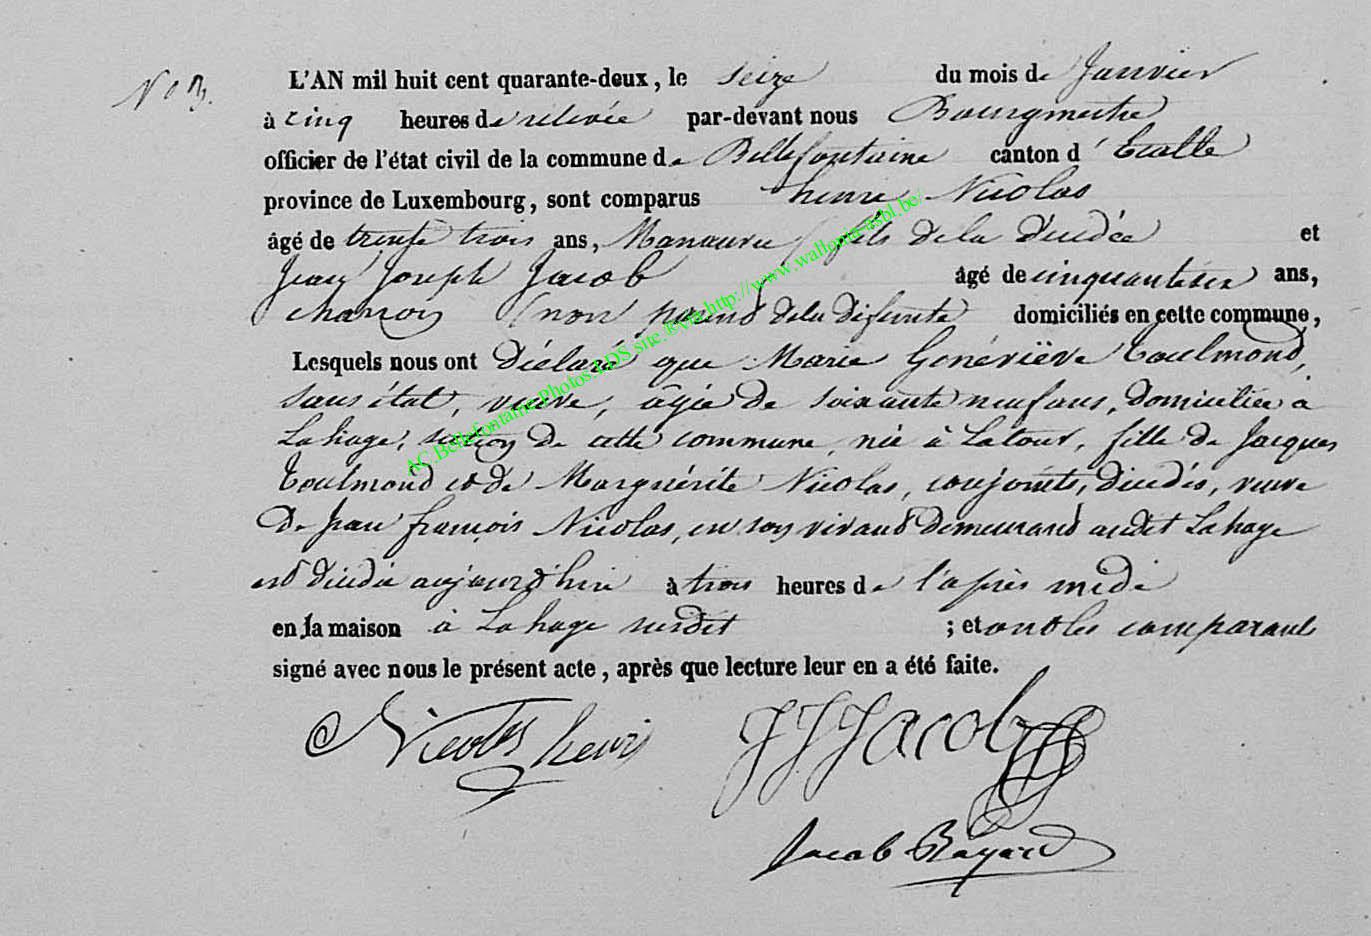 No 3.
L'AN mil huit cent quarante-deux, le seize du mois de Janvier
à cinq heures de relevée par-devant nous Bourgmestre
officier de l'état civil de la commune de Bellefontaine canton d'Etalle
province de Luxembourg, sont comparus henri Nicolas
âgé de trente trois ans, Manœuvre, fils de la décédée et
Jean Joseph Jacob âgé de cinquante six ans,
charron (non parend de la défunte domiciliés en cette commune,
Lesquels nous ont déclaré que Marie Généviève Toulmond,
sans état, veuve, agée de soixante neuf ans, domiciliée à
Lahage, section de cette commune, née à Latour, fille de Jacques
Toulmond et de Marguérite Nicolas, conjoints, décédés, veuve
de Jean françois Nicolas, en son vivand demeurand audit Lahage
est décédée aujourd'hui à trois heures de l'après midi
en sa maison à Lahage susdit ; et ont les comparants
signé avec nous le présent acte, après que lecture leur en a été faite.
Nicolas henri JJ Jacob
Jacob
AC.Bellefontaine.Photos.LDS site. via http://www.wallonia-asbl.be/